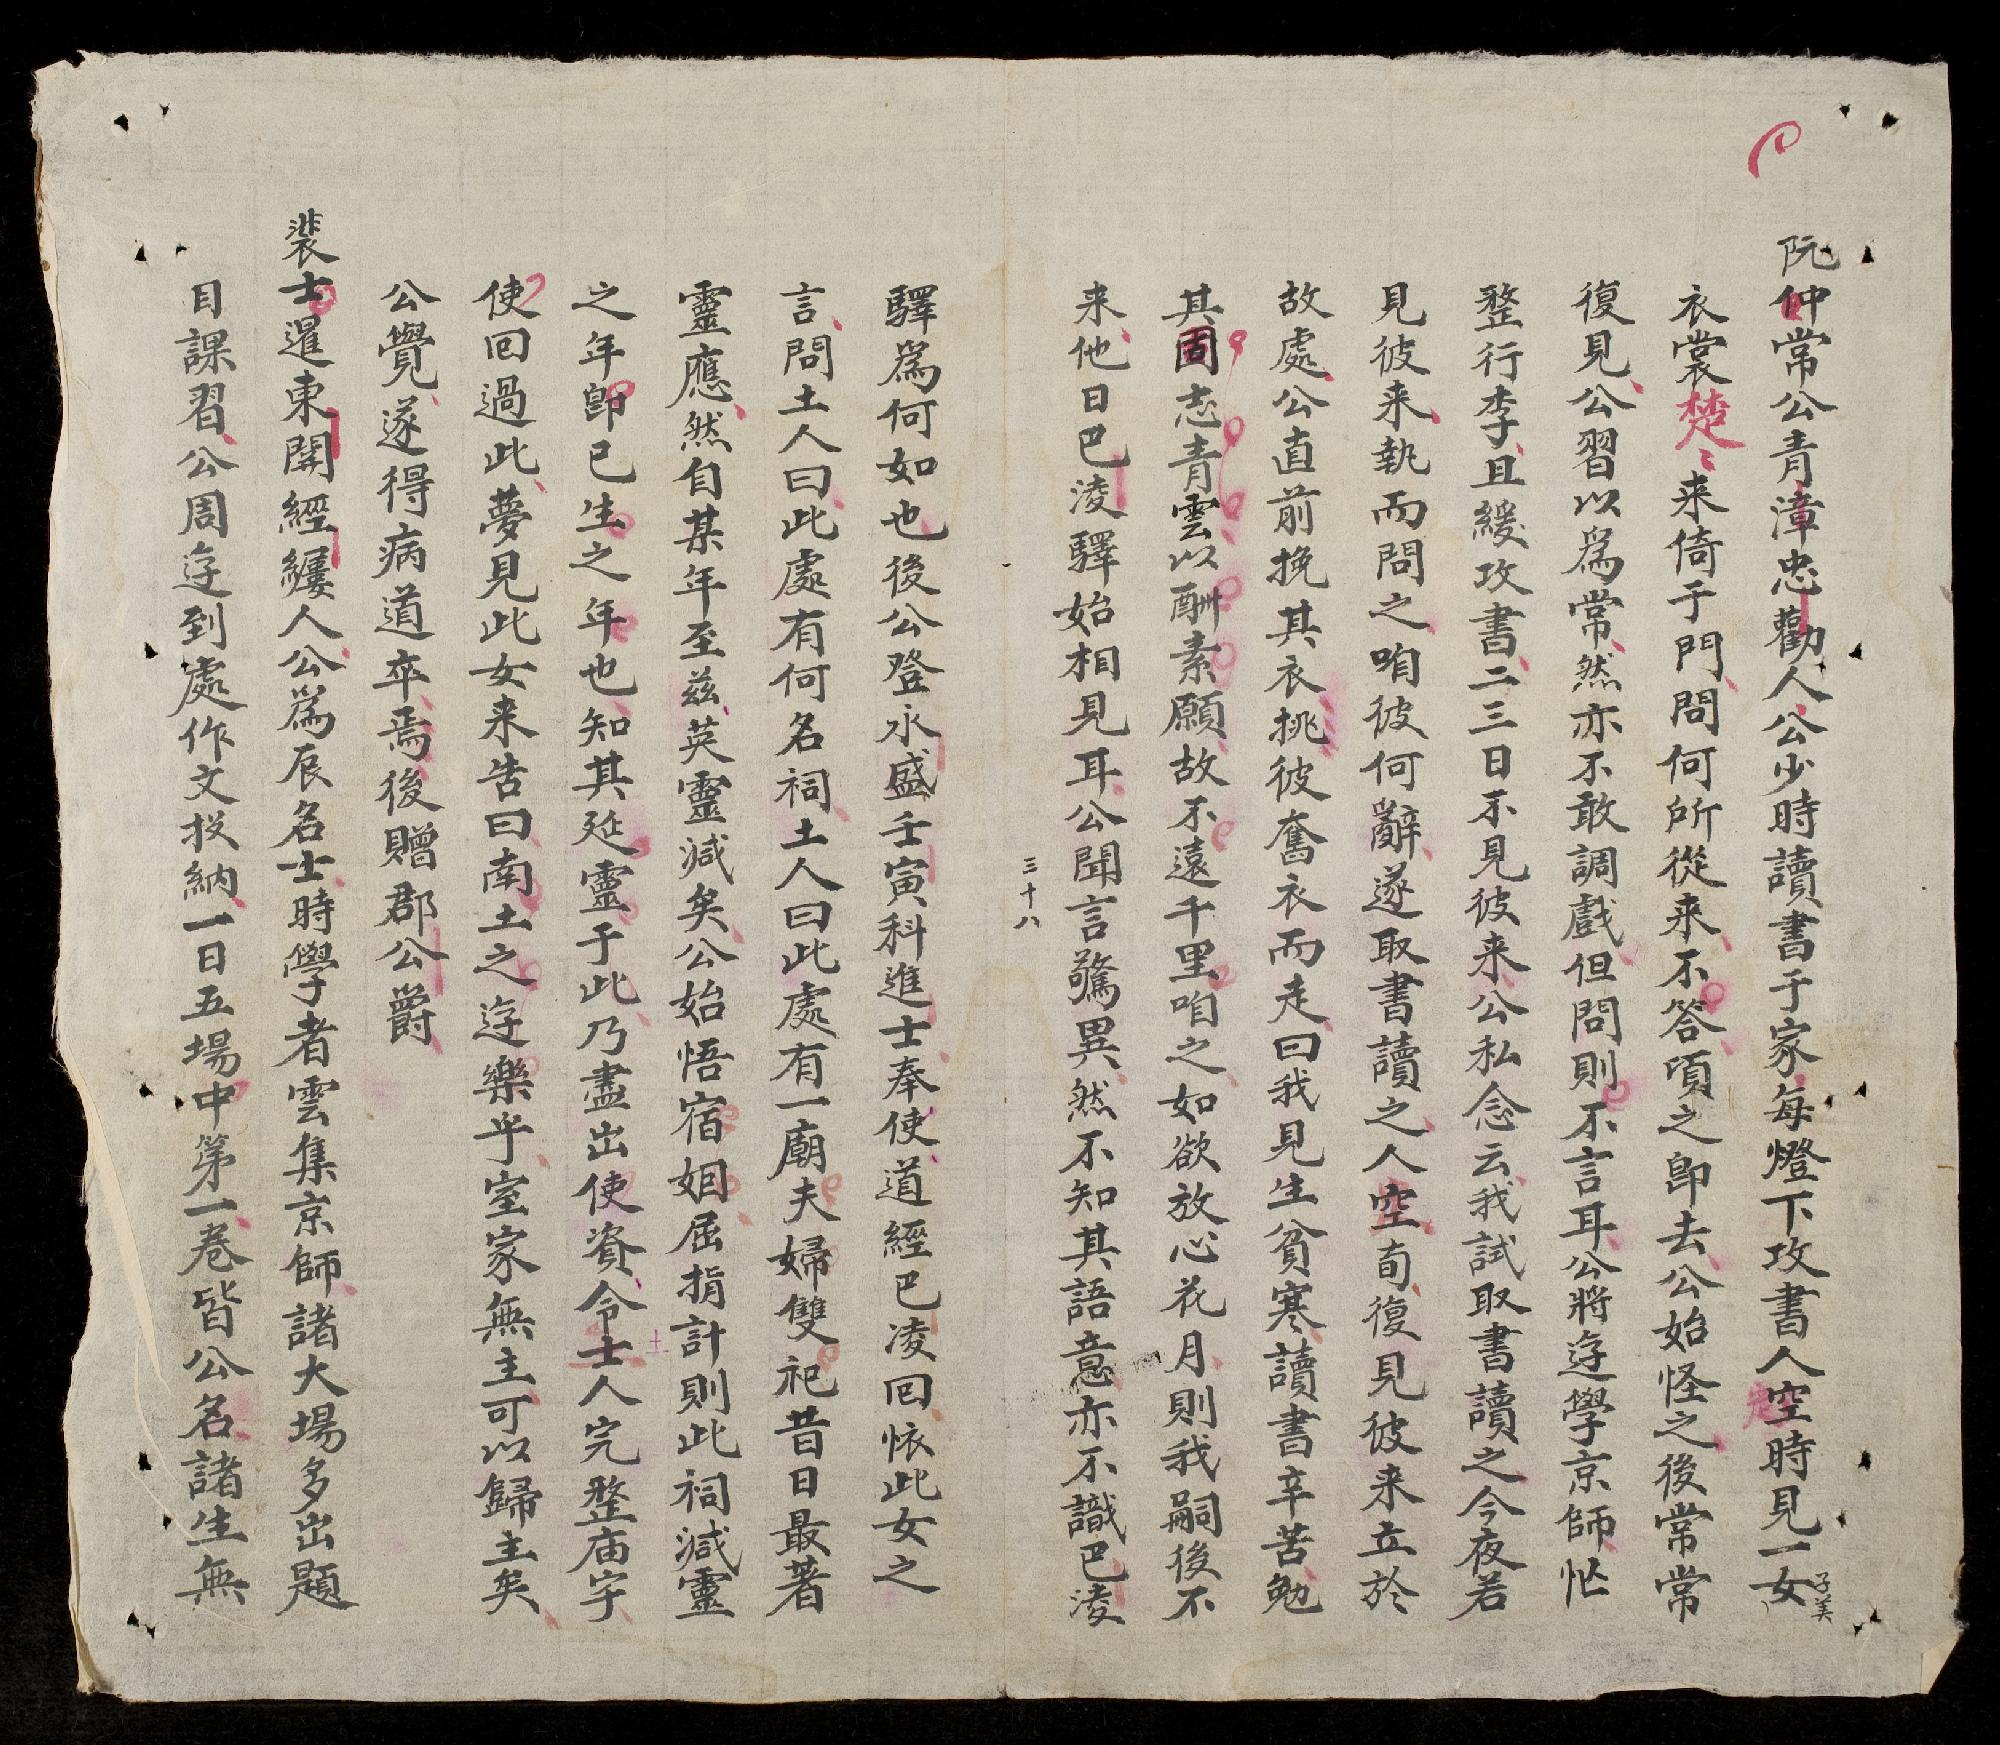 阮仲常公青漳忠勸人公少時讀書于家每燈下攻書人空時見一女子美
衣裳楚〻来倚于門問何所從来不答頃之即去公始怪之後常常
復見公習以為常然亦不敢調戲但問則不言耳公將遊學京師忙
整行李且緩攻書二三日不見彼来公私念云我試取書讀之今夜若
見彼来執而問之咱彼何辭遂取書讀之人空旬復見彼来立於
故處公直前挽其衣挑彼奮衣而走曰我見生貧寒讀書辛苦勉
其固志青雲以酬素願故不遠千里咱之如欲放心花月則我嗣後不
来他日巴淩驛始相見耳公聞言驚異然不知其語意亦不識巴淩
三十八
驛為何如也後公登永盛壬寅科進士奉使道經巴凌回恢此女之
言問土人曰此處有何名祠土人曰此處有一廟夫婦雙祀昔日最著
靈應然自某年至兹英靈減矣公始悟宿姻屈指計則此祠減靈
之年卽已生之年也知其延靈于此乃盡出使資令士人完整庙宇
土
使回過此夢見此女来告曰南土之遊樂乎室家無主可以歸主矣
公覺遂得病道卒焉後贈郡公爵
裴士暹東開經纏人公為辰名士時學者雲集京師諸大場多出題
目課習公周遊到處作文投納一日五場中第一卷皆公名諸生無